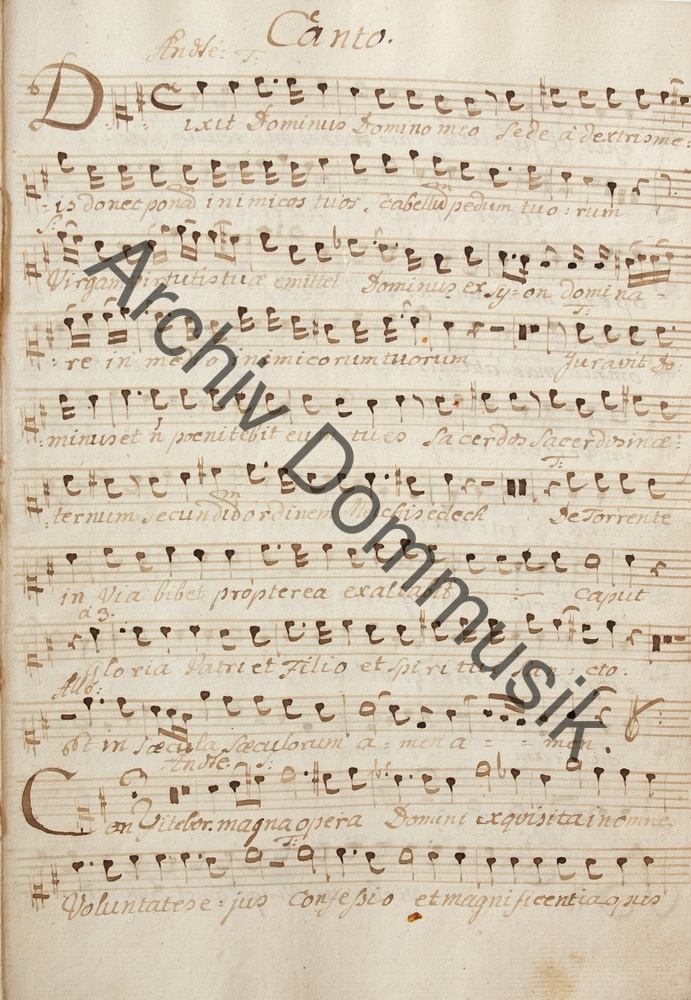 Canto.
Andte: T:
Dixit Dominus Domino meo Sede a dextris me:
is donec ponā inimicos tuos scabellū pedum tuo: rum
S:
Virgam virtutis tuæ emittet Dominus ex Sy=on domina=
T:
re in medio inimicorum tuorum Juravit Do:
minus et ñ pœnitebit eum tu es Sacerdos Sacerdos in æ:
T:
ternum secundū ordinem Melchisedech De Torrente
in via bibet propterea exaltabit caput
a 3.
Gloria Patri et Filio et Spiritui San: cto.
Allo:
Et in Sæcula Sæculorum a=men a = = men.
Andte. S:
Confitebor. magna opera Domini exquisita in omnes
T:
Voluntates e=jus Confessio et magnificentia opus
Archiv Dommusik